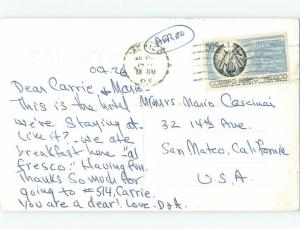 AEREO
Oct. 26
Dear Carrie & Mario-
This is the hotel
we're staying at
Like it? - we ate
breakfast here "al
fresco." Having fun.
Thanks so much for
going to #514, Carrie.
You are a dear! Love. D&A
CORREO AEREO MEXICO
Mario
32 14th Ave
San Mateo, California
U.S.A.